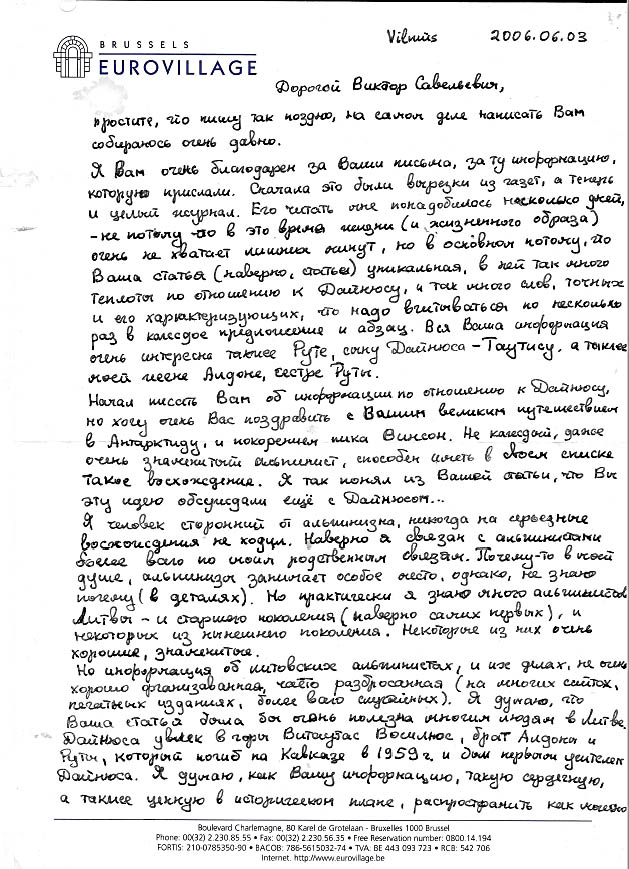 BRUSSELS
EUROVILLAGE
Vilnius 2006.06.03
Дорогой Виктор Савельевич,
простите, что пишу так поздно, на самом деле написать Вам
собираюсь очень давно.
Я Вам очень благодарен за Ваши письма, за ту информацию,
которую прислали. Сначала это были вырезки из газет, а теперь
и целый журнал. Его читать мне понадобилось несколько дней,
-не потому что в это время жизни (и жизненного образа)
очень не хватает лишних минут, но в основном потому, что
Ваша статья (наверно, статьи) уникальная, в ней так много
теплоты по отношению к Дайнюсу, и так много слов, точных
и его характеризующих, что надо вчитываться по несколько
раз в каждое предложение и абзац. Вся Ваша информация
очень интересна также Руте, сыну Дайнюса - Таутису, а также
моей жене Алдоне, сестре Руты.
Начал писать Вам об информации по отношению к Дайнюсу,
но хочу очень Вас поздравить с Вашим великим путешествием
в Антарктиду, и покорением пика Винсон. Не каждый, даже
очень знаменитый альпинист, способен иметь в своем списке
такое восхождение. Я так понял из Вашей статьи, что Вы
эту идею обсуждали ещё с Дайнюсом...
Я человек сторонний от альпинизма, никогда на серьезные
восхождения не ходил. Наверно я связан с альпинистами
более всего по моим родственным связям. Почему-то в моей
душе, альпинизм занимает особое место, однако, не знаю
почему (в деталях). Но практически я знаю много альпинистов
Литвы - и старшего поколения (наверно самих первых), и
некоторых из нынешнего поколения. Некоторые из них очень
хорошие, знаменитые.
Но информация об литовских альпинистах, и их делах, не очень
хорошо организаванная, часто разбросанная (на многих сайтах,
печатных изданиях, более всего случайных). Я думаю, что
Ваша статья была бы очень полезна многим людям в Литве.
Дайнюса увлек в горы Витаутас Восилюс, брат Алдоны и
Руты, который погиб на Кавказе в 1959 г. и был первым учителем
Дайнюса. Я думаю, как Вашу информацию, такую сердечную,
а также ценную в историческом плане, распространить как можно
Boulevard Charlemagne, 80 Karel de Grotelaan - Bruxelles 1000 Brussel
Phone: 00(32) 2.230.85 55 • Fax: 00(32) 2.230.56.35 • Free Reservation number: 0800.14.194
FORTIS: 210-0785350-90 • BACOB: 786-5615032-74 • TVA: BE 443 093 723 • RCB: 542 706
Internet. http://www.eurovillage.be